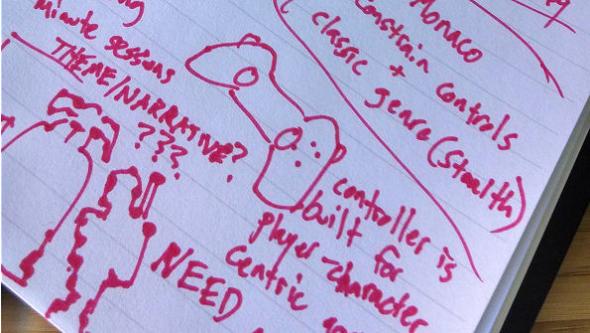 minute sessions
THEME/NARRATIVE?
???
Monaco
constrain controls
+
classic genre (stealth)
controller is
built for
player-character
centric
NEED